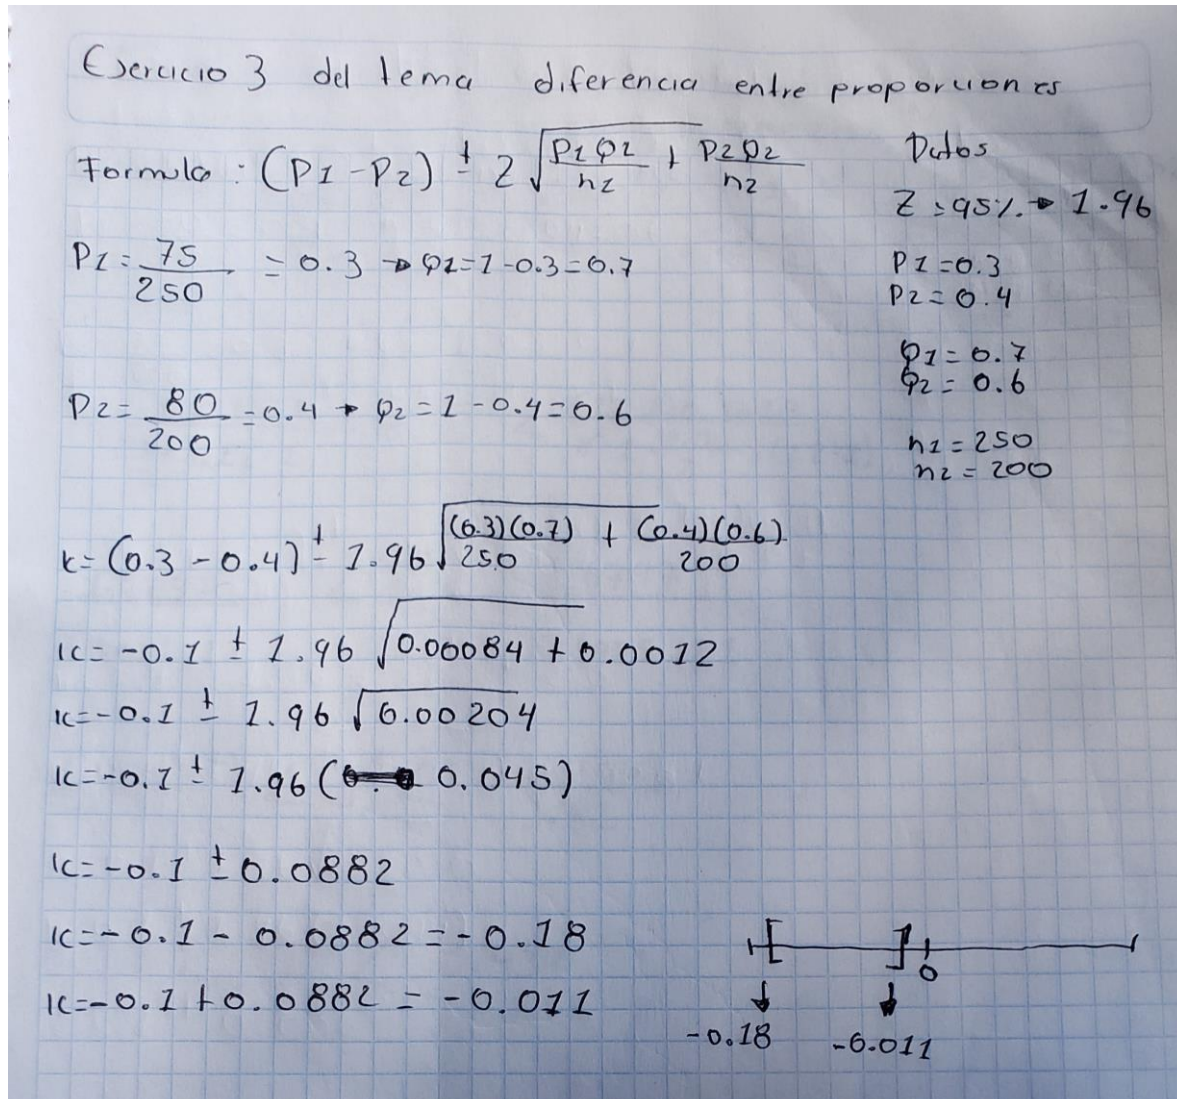 Ejercicio 3 del tema diferencia entre proporciones
Formula: (P1 - P2) ± Z √ P1Q1/n1 + P2Q2/n2
Datos
Z = 95% → 1.96
P1 = 75/250 = 0.3 → Q1 = 1 - 0.3 = 0.7
P1 = 0.3
P2 = 0.4
Q1 = 0.7
Q2 = 0.6
P2 = 80/200 = 0.4 → Q2 = 1 - 0.4 = 0.6
n1 = 250
n2 = 200
IC = (0.3 - 0.4) ± 1.96 √ (0.3)(0.7)/250 + (0.4)(0.6)/200
IC = -0.1 ± 1.96 √0.00084 + 0.0012
IC = -0.1 ± 1.96 √0.00204
IC = -0.1 ± 1.96 (0.045)
IC = -0.1 ± 0.0882
IC = -0.1 - 0.0882 = -0.18
IC = -0.1 + 0.0882 = -0.011
0
-0.18 -0.011